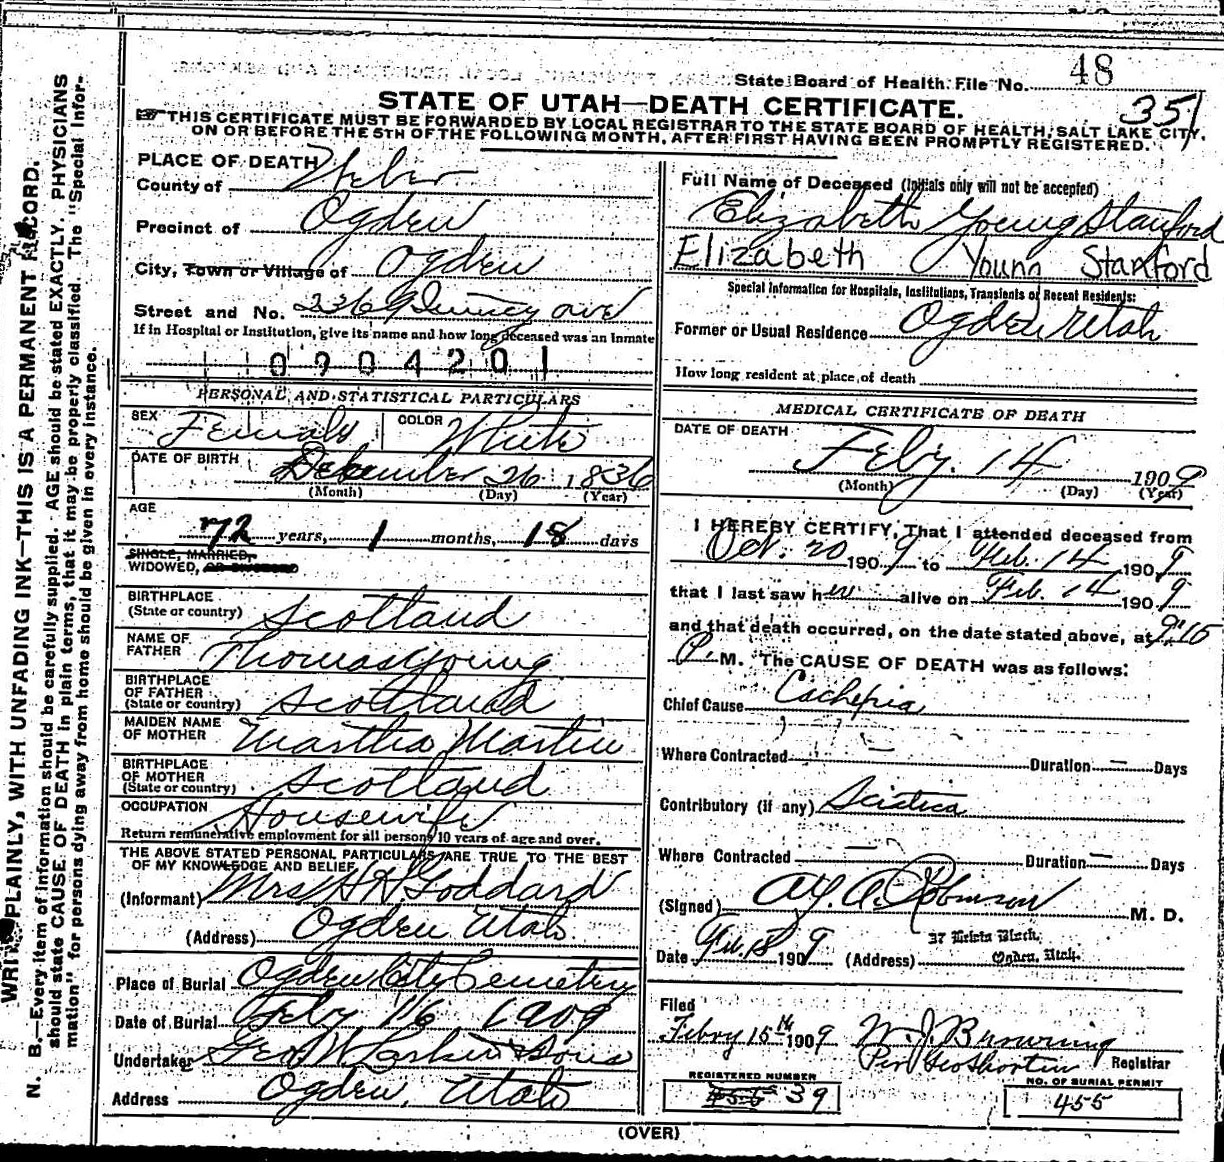 State Board of Health File No. 48
351
STATE OF UTAH—DEATH CERTIFICATE.
THIS CERTIFICATE MUST BE FORWARDED BY LOCAL REGISTRAR TO THE STATE BOARD OF HEALTH, SALT LAKE CITY,
ON OR BEFORE THE 5TH OF THE FOLLOWING MONTH, AFTER FIRST HAVING BEEN PROMPTLY REGISTERED.
WRITE PLAINLY, WITH UNFADING INK—THIS IS A PERMANENT RECORD.
N. B.—Every item of information should be carefully supplied. AGE should be stated EXACTLY. PHYSICIANS
should state CAUSE OF DEATH in plain terms, that it may be properly classified. The "Special Infor-
mation" for persons dying away from home should be given in every instance.
PLACE OF DEATH
County of Weber
Precinct of Ogden
City, Town or Village of Ogden
Street and No. 2369 Quincy ave
If in Hospital or Institution, give its name and how long deceased was an Inmate
090420
PERSONAL AND STATISTICAL PARTICULARS
SEX Female COLOR White
DATE OF BIRTH December 26 1836
(Month) (Day) (Year)
AGE
72 years, 1 months, 18 days
SINGLE, MARRIED,
WIDOWED, OR DIVORCED
BIRTHPLACE
(State or country) Scotland
NAME OF
FATHER Thomas Young
BIRTHPLACE
OF FATHER
(State or country) Scotland
MAIDEN NAME
OF MOTHER Martha Martin
BIRTHPLACE
OF MOTHER
(State or country) Scotland
OCCUPATION Housewife
Return remunerative employment for all persons 10 years of age and over.
THE ABOVE STATED PERSONAL PARTICULARS ARE TRUE TO THE BEST
OF MY KNOWLEDGE AND BELIEF
(Informant) Mrs H H Goddard
(Address) Ogden Utah
Place of Burial Ogden City Cemetery
Date of Burial Feby 16 1909
Undertaker Geo W Larkin & Sons
Address Ogden, Utah
Full Name of Deceased (Initials only will not be accepted)
Elizabeth Young Stanford
Elizabeth Young Stanford
Special Information for Hospitals, Institutions, Transients or Recent Residents:
Former or Usual Residence Ogden, Utah
How long resident at place of death
MEDICAL CERTIFICATE OF DEATH
DATE OF DEATH
Feby. 14 1909
(Month) (Day) (Year)
I HEREBY CERTIFY, That I attended deceased from
Oct. 20 1909 to Feb. 14 1909
that I last saw her alive on Feb. 14 1909
and that death occurred, on the date stated above, at 9:15
P. M. The CAUSE OF DEATH was as follows:
Chief Cause Cachexia
Where Contracted — Duration — Days
Contributory (if any) Sciatica
Where Contracted — Duration — Days
(Signed) A. Robinson M. D.
Date Feb. 15 1909 (Address) 37 Block,
Ogden, Utah.
Filed
Febry 15th 1909 W. J. Browning
Per Geo Shorten Registrar
REGISTERED NUMBER
455 39
NO. OF BURIAL PERMIT
455
(OVER)